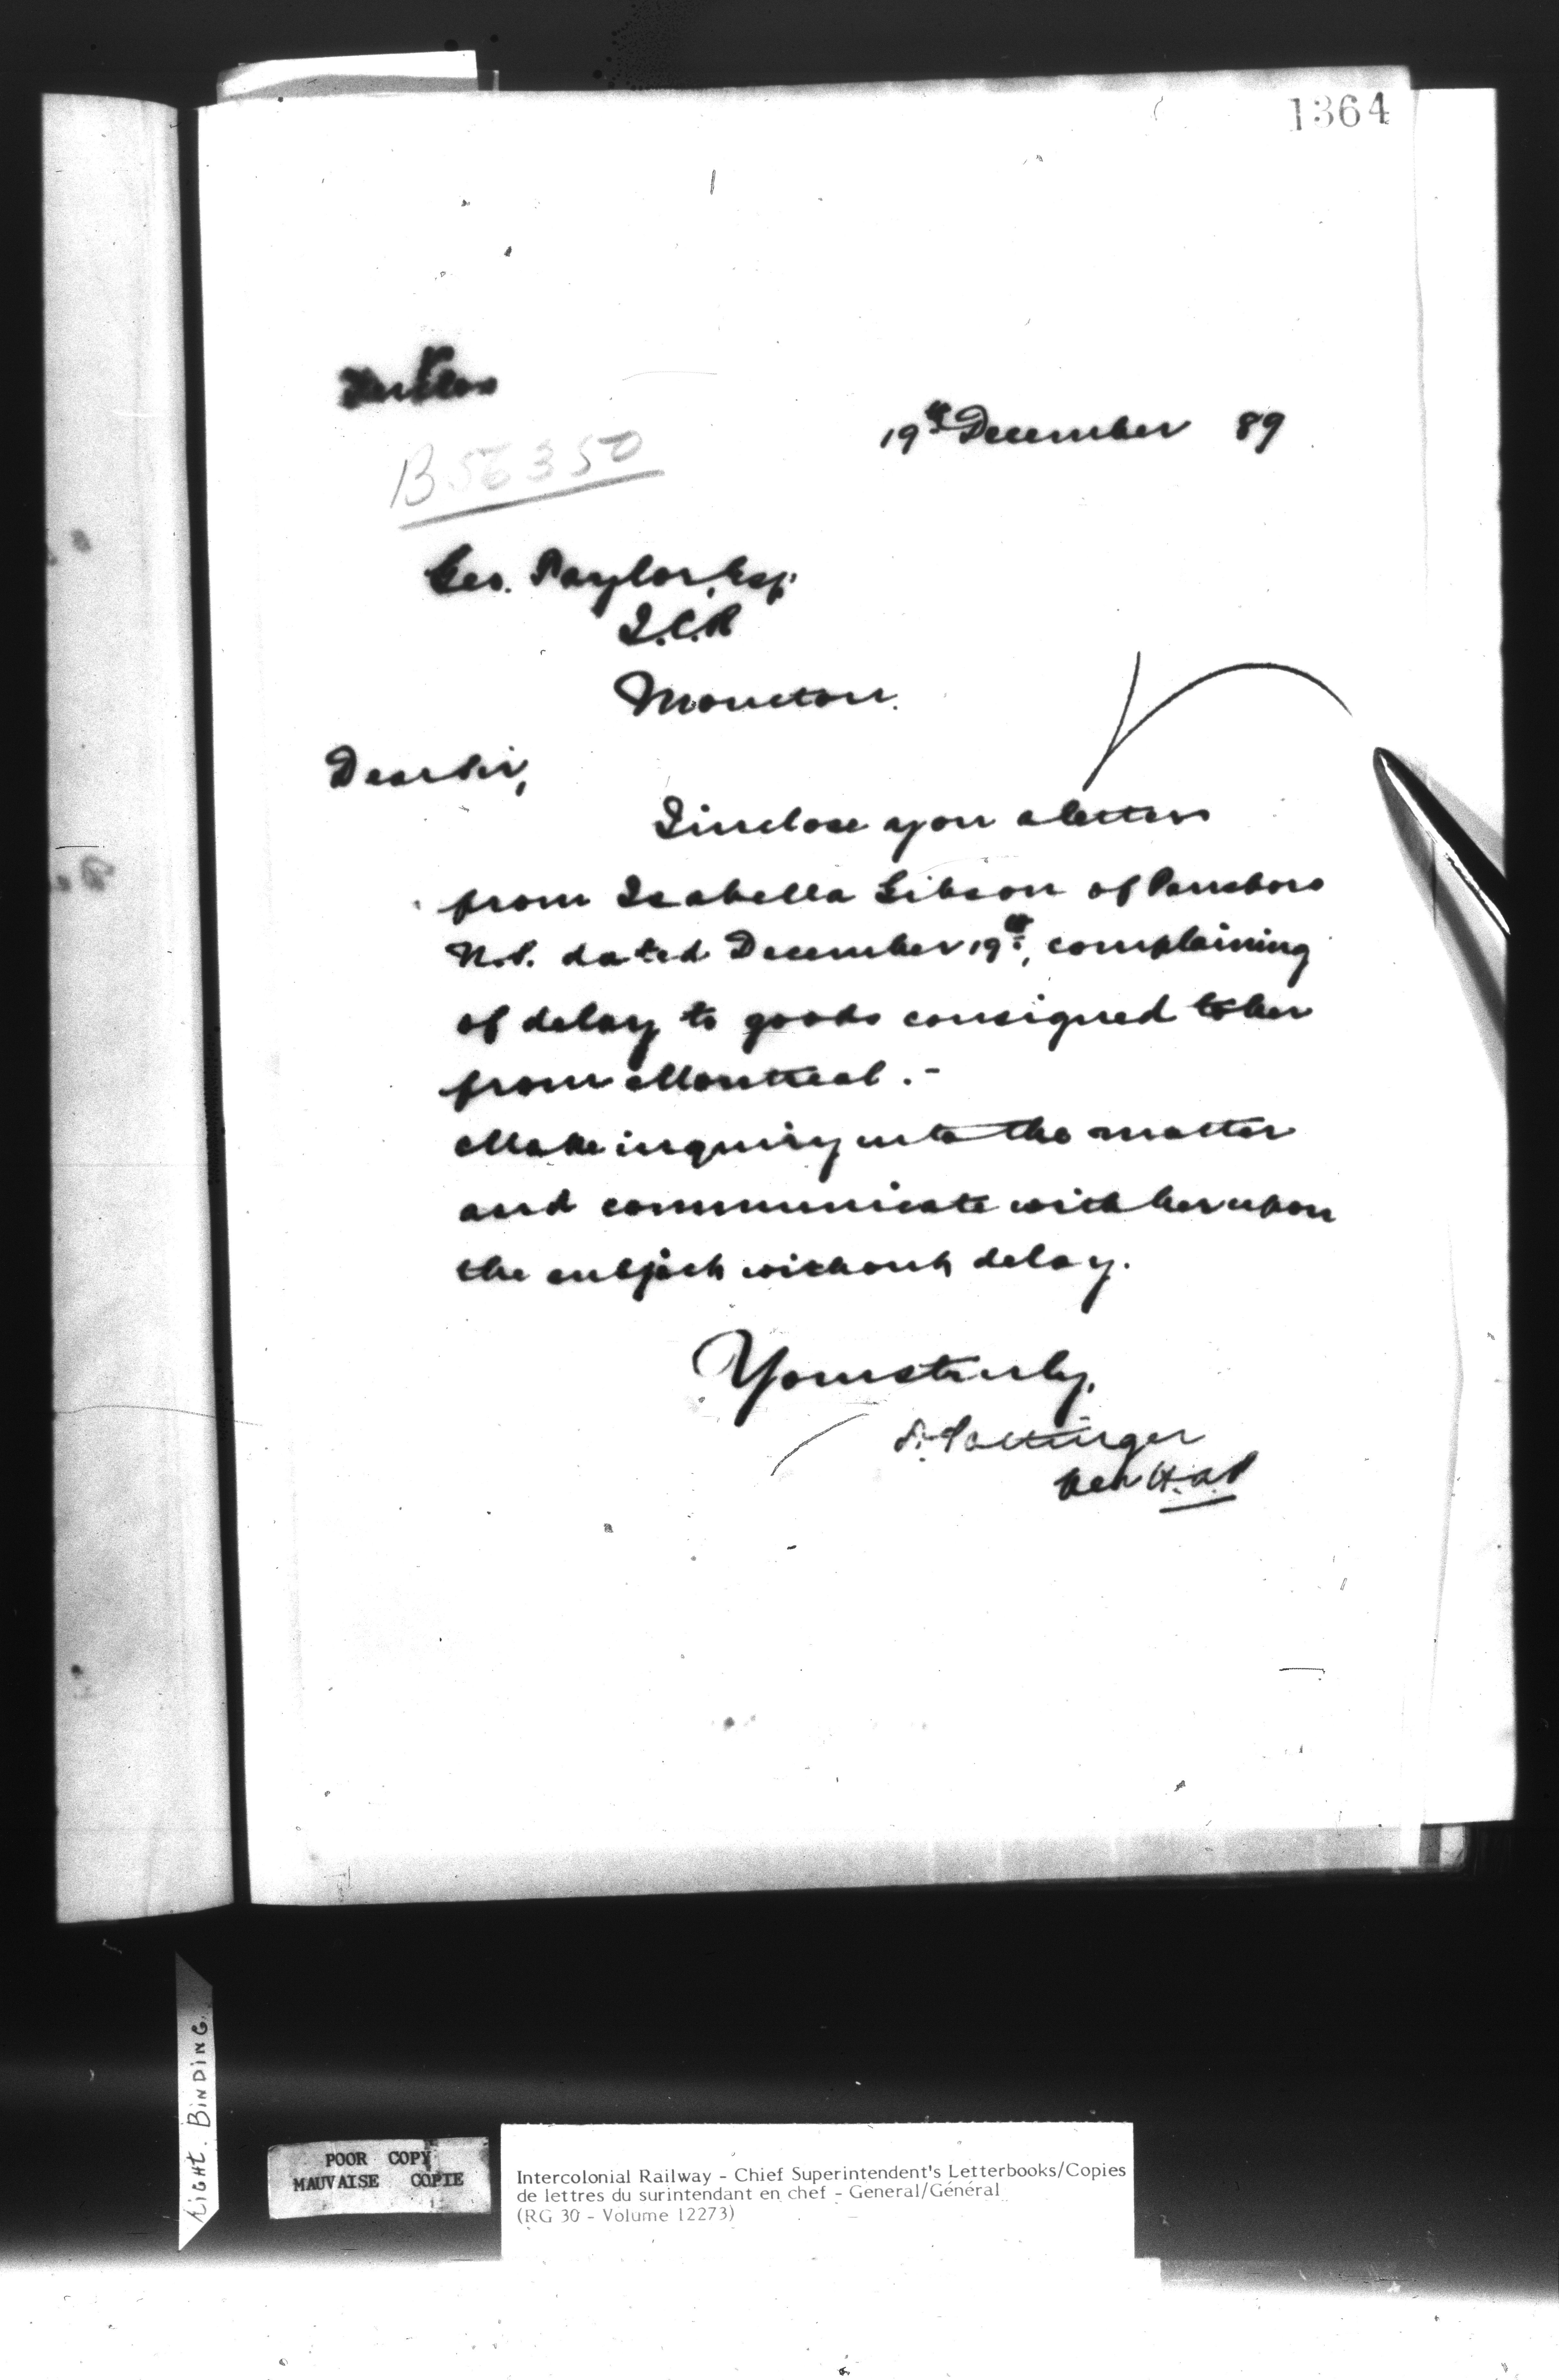 1364
19th December 89
B56350
Geo. Taylor, Esq.
I.C.R
Moncton.
Dear Sir,
I inclose you a letter
from Isabella Gibson of Parrsboro
N.S. dated December 19th, complaining
of delay to goods consigned to her
from Montreal.-
Make inquiry into the matter
and communicate with her upon
the subject without delay.
Yours truly,
D. Pottinger
Per H.A.P
TIGHT. BINDING.
POOR COPY
MAUVAISE COPIE
Intercolonial Railway - Chief Superintendent's Letterbooks/Copies
de lettres du surintendant en chef - General/Général
(RG 30 - Volume 12273)